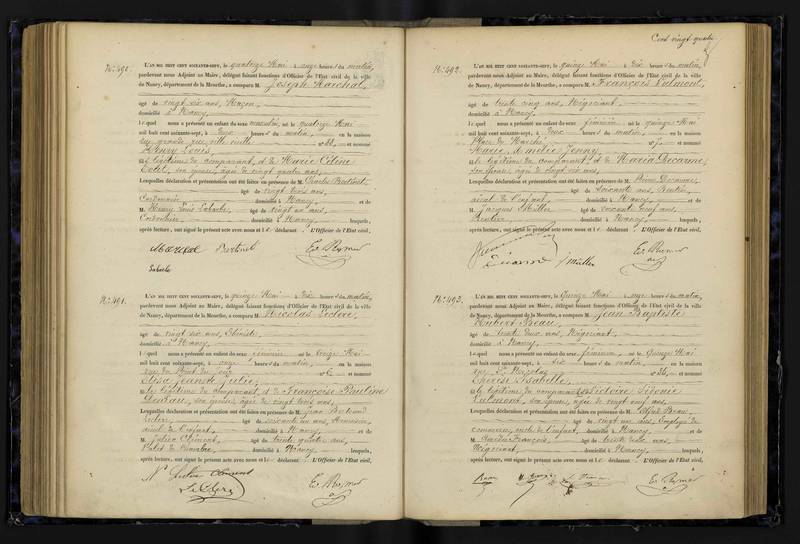 N.º 490.
L'AN MIL HUIT CENT SOIXANTE-SEPT, le quatorze Mai à onze heures du matin,
pardevant nous Adjoint au Maire, délégué faisant fonctions d'Officier de l'Etat civil de la ville
de Nancy, département de la Meurthe, a comparu M. Joseph Marchal,
âgé de vingt six ans, Maçon,
domicilié à Nancy,
lequel nous a présenté un enfant du sexe masculin, né le quatorze Mai
mil huit cent soixante-sept, à deux heures du matin, en la maison
rue grande rue ville vieille n° 88, et nommé
Henry Louis,
fils légitime du comparant, et de Marie Céline
son épouse, âgée de vingt quatre ans,
Lesquelles déclaration et présentation ont été faites en présence de M. Charles
âgé de vingt trois ans,
Cordonnier, domicilié à Nancy, et de
M. Henry Louis âgé de vingt un ans,
Cordonnier, domicilié à Nancy, lesquels,
après lecture, ont signé le présent acte avec nous et le déclarant. L'Officier de l'Etat civil,
N.º 491.
L'AN MIL HUIT CENT SOIXANTE-SEPT, le quinze Mai à dix heures du matin,
pardevant nous Adjoint au Maire, délégué faisant fonctions d'Officier de l'Etat civil de la ville
de Nancy, département de la Meurthe, a comparu M. Nicolas Leclerc,
âgé de vingt six ans, Ebéniste,
domicilié à Nancy,
lequel nous a présenté un enfant du sexe féminin né le treize Mai
mil huit cent soixante-sept, à onze heures du matin, en la maison
rue du Pont n° 6 et nommé
Elise Jeanne Julie,
fille légitime du comparant, et de Françoise Pauline
son épouse, âgée de vingt trois ans,
Lesquelles déclaration et présentation ont été faites en présence de M. Jean Bertrand
Leclerc, âgé de soixante un ans, Menuisier,
aïeul de l'enfant, domicilié à Nancy, et de
M. Julien Clément, âgé de trente quatre ans,
Valet de Chambre, domicilié à Nancy, lesquels,
après lecture, ont signé le présent acte avec nous et le déclarant. L'Officier de l'Etat civil,
Leclerc
Cent vingt quatre
N.º 492.
L'AN MIL HUIT CENT SOIXANTE-SEPT, le quinze Mai à dix heures du matin,
pardevant nous Adjoint au Maire, délégué faisant fonctions d'Officier de l'Etat civil de la ville
de Nancy, département de la Meurthe, a comparu M. François
âgé de trente cinq ans, Négociant,
domicilié à Nancy,
lequel nous a présenté un enfant du sexe féminin, né le quinze Mai
mil huit cent soixante-sept, à deux heures du matin, en la maison
Place du Marché, n° 7, et nommé
Marie Amélie Jenny,
fille légitime du comparant et de Maria Decanne,
son épouse, âgée de vingt six ans,
Lesquelles déclaration et présentation ont été faites en présence de M. Pierre Decanne,
âgé de soixante ans, Rentier,
aïeul de l'enfant, domicilié à Nancy, et de
M. Jacques Müller âgé de soixante cinq ans,
Rentier, domicilié à Nancy, lesquels,
après lecture, ont signé le présent acte avec nous et le déclarant. L'Officier de l'Etat civil,
Müller
N.º 493.
L'AN MIL HUIT CENT SOIXANTE-SEPT, le Quinze Mai à onze heures du matin,
pardevant nous Adjoint au Maire, délégué faisant fonctions d'Officier de l'Etat civil de la ville
de Nancy, département de la Meurthe, a comparu M. Jean Baptiste
Hubert Beau,
âgé de trente deux ans, Négociant,
domicilié à Nancy,
lequel nous a présenté un enfant du sexe féminin, né le Quinze Mai
mil huit cent soixante-sept, à six heures du matin, en la maison
rue St. Nicolas, n° 36, et nommé
Thérèse Isabelle,
fille légitime du comparant et de Victoire Sidonie
son épouse, âgée de vingt neuf ans,
Lesquelles déclaration et présentation ont été faites en présence de M. Alfred Beau,
âgé de vingt un ans, Employé de
commerce, oncle de l'enfant, domicilié à Nancy, et de
M. François, âgé de trente deux ans,
Négociant, domicilié à Nancy, lesquels,
après lecture, ont signé le présent acte avec nous et le déclarant. L'Officier de l'Etat civil,
Beau